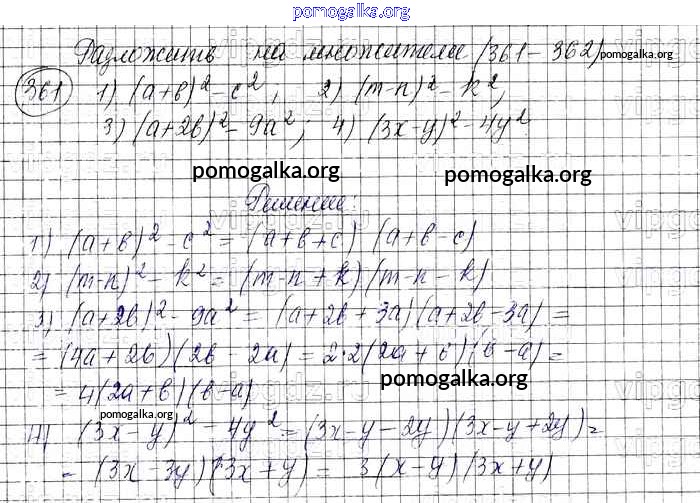 pomogalka.org
Разложить на множители (361 – 362) pomogalka.org
361 1) (a+b)² – c², 2) (m-n)² – k²,
3) (a+2b)² – 9a²; 4) (3x-y)² – 4y²
pomogalka.org pomogalka.org
Решение:
1) (a+b)² – c² = (a+b+c) (a+b-c)
2) (m-n)² – k² = (m-n+k)(m-n-k)
3) (a+2b)² – 9a² = (a+2b+3a)(a+2b-3a) =
= (4a+2b)(2b-2a) = 2·2(2a+b)(b-a) =
= 4(2a+b)(b-a)
pomogalka.org
pomogalka.org
4) (3x-y)² – 4y² = (3x-y-2y)(3x-y+2y) =
= (3x-3y)(3x+y) = 3(x-y)(3x+y)